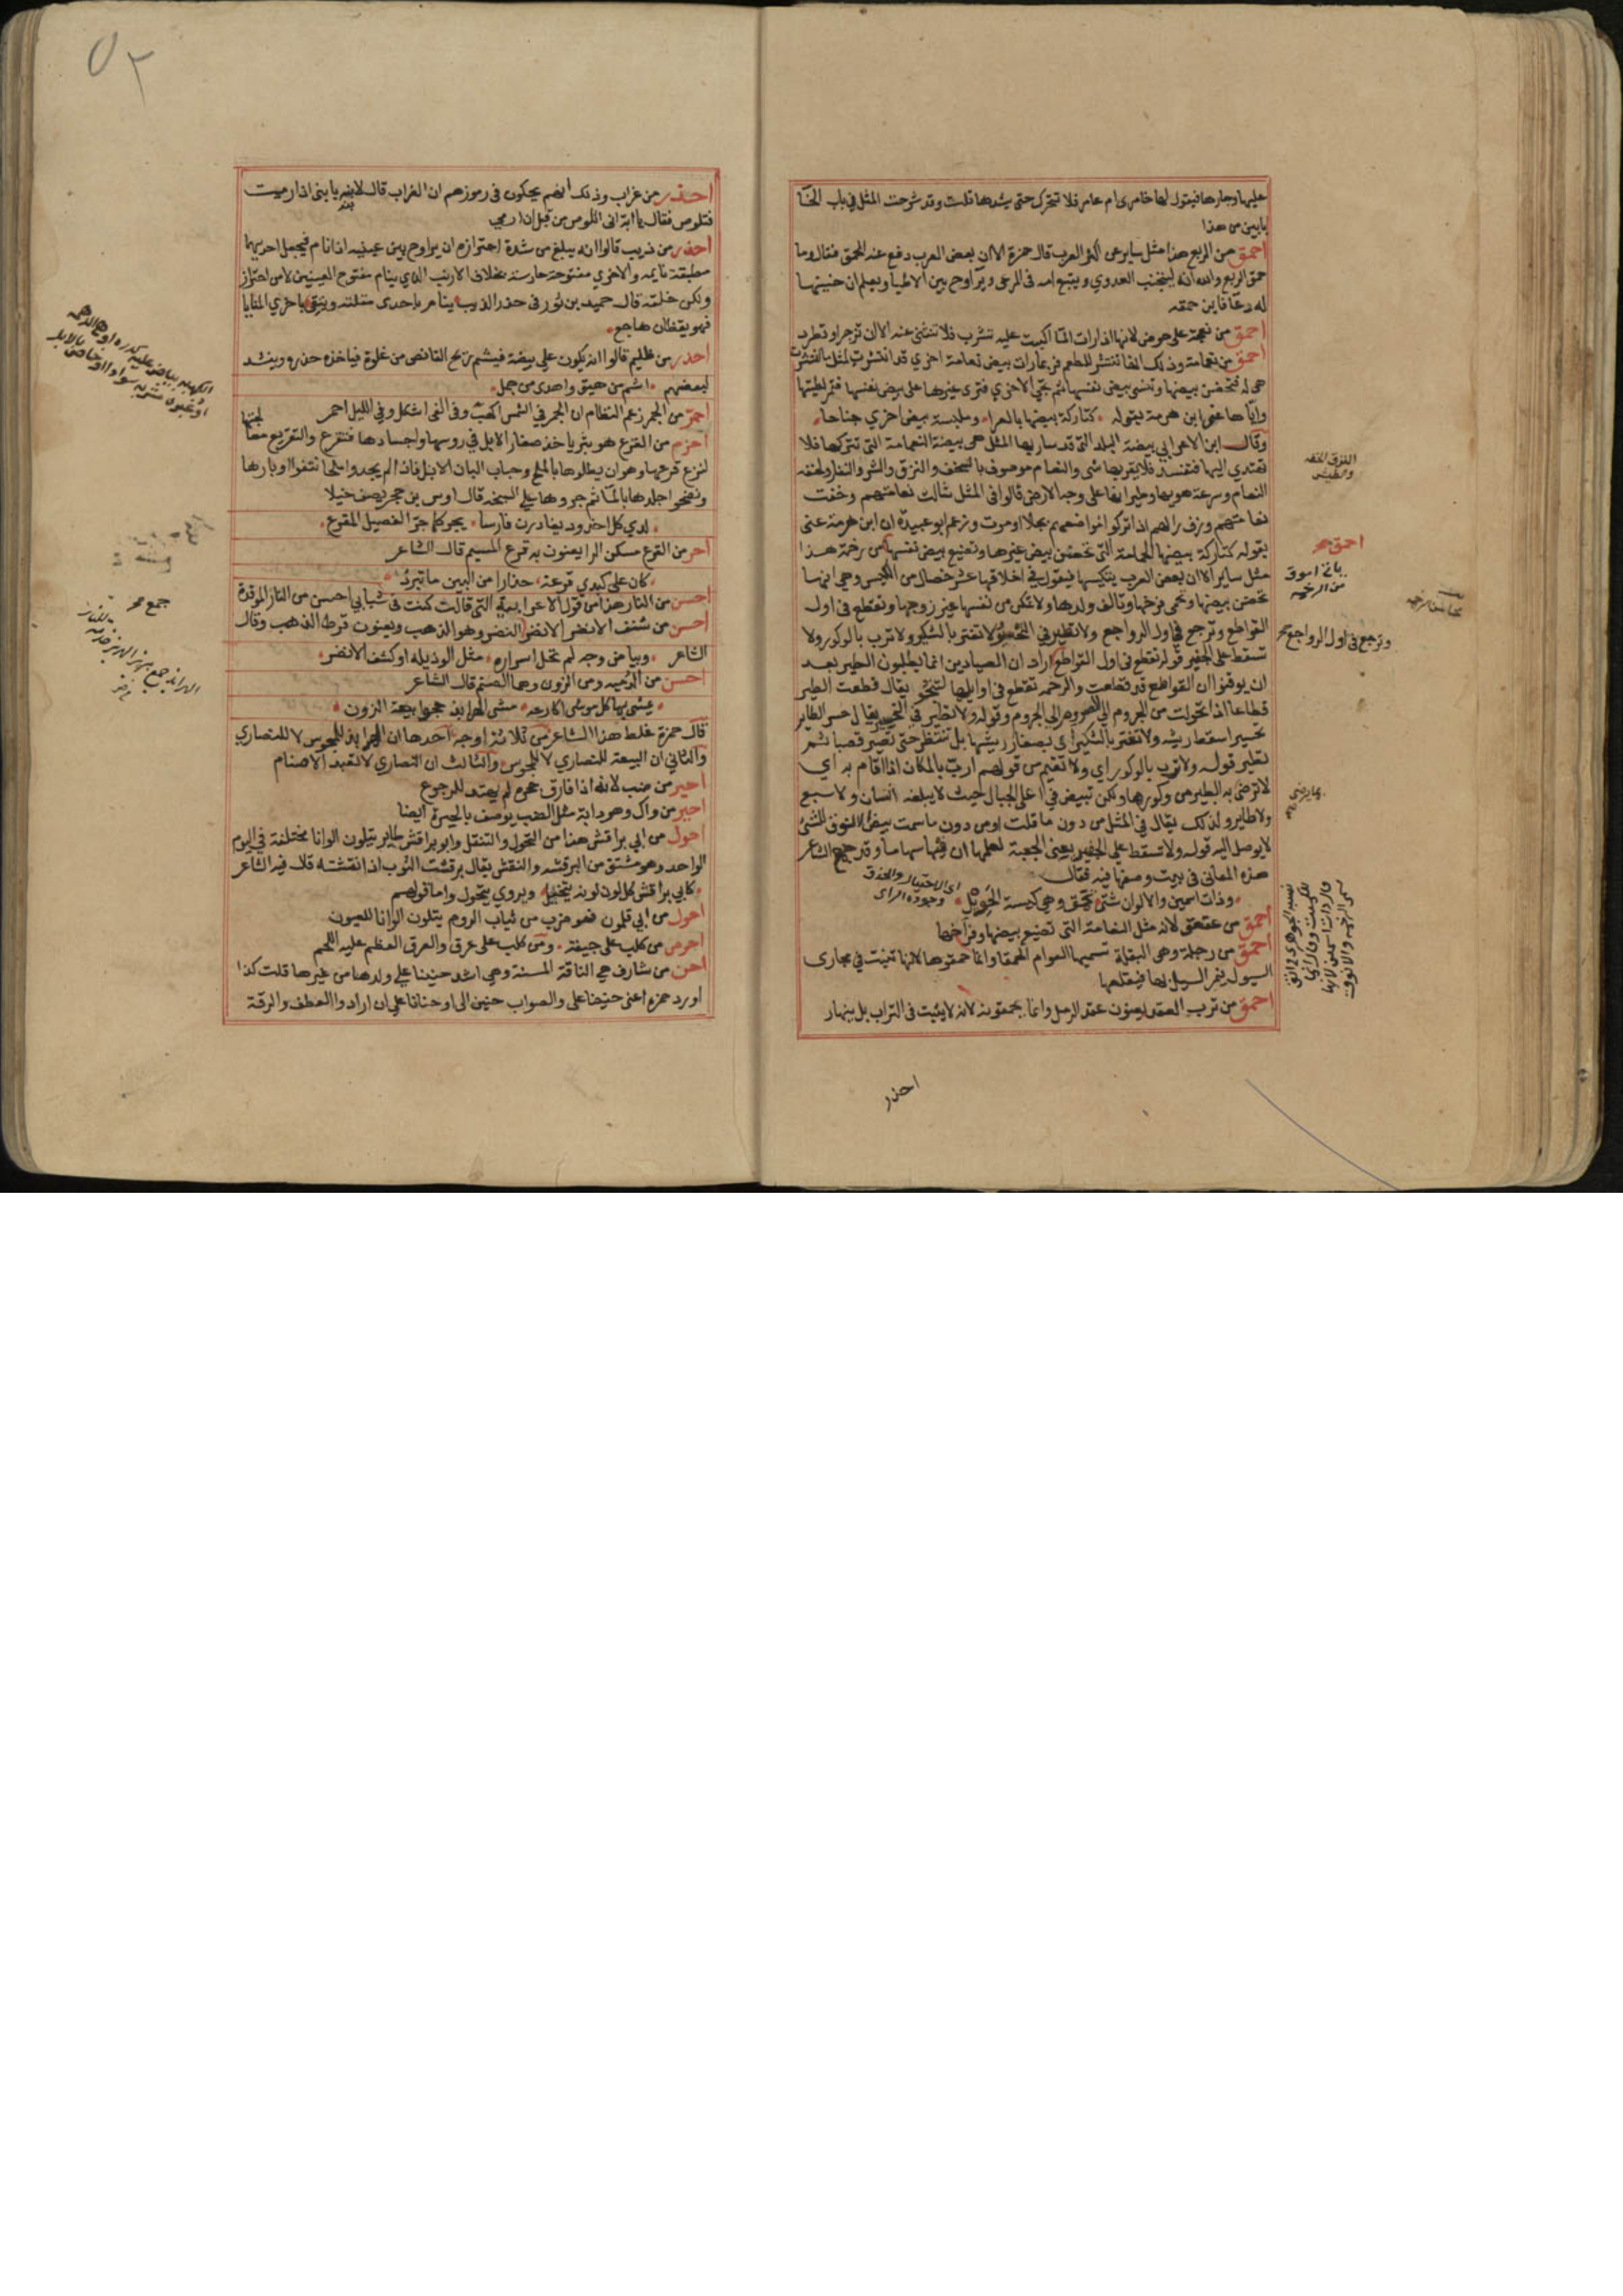 عليها وجارها فيقول لها خامري ام عامر فلا تتحرك حتى يشدها قلت وقد شرحت المثل في باب الخا
بابين من هذا
احمق من الربع هذا مثل ساير عن اكثر العرب قال حمزة الا ان بعض العرب دفع عنه الحمق فقال وما
حمق الربع والله انه ليجتنب العدوي ويتبع امه في المرعى ويراوح بين الاطبا ويعلم ان حنينها
له دعا فاين حمقه
احمق من نعجة على حوض لانها اذا رات الما اكبت عليه تشرب فلا تنثني عنه الا ان تزجر او تطرد
احمق من نعامة وذلك انها تنتشر للطعم فربما رات بيض نعامة اخري قد انتشرت لمثل ما انتشرت
هي له فتحضن بيضها وتنسى بيض نفسها ثم تجي الاخري فترى غيرها على بيض نفسها فتمر لطيتها
واياها عنى ابن هرمة بقوله كتاركة بيضها بالعرا وملبسة بيض اخري جناحا
وقال ابن الاعرابي بيضة البلد التي قد سار بها المثل هي بيضة النعامة التي تتركها فلا
تهتدي اليها فتفسد فلا يقربها شي والنعام موصوف بالسخف والنزق والشرد والنفار ولخفة
النعام وسرعة هويها وطيرانها على وجه الارض قالوا في المثل شالت نعامتهم وخفت
نعامتهم وزف رالهم اذا تركوا مواضعهم بجلا او موت وزعم ابو عبيدة ان ابن هرمة عنى
بقوله كتاركة بيضها الحمامة التي تحضن بيض غيرها وتضيع بيض نفسها من رخمة هذا
مثل ساير الا ان بعض العرب يتكيسها فيقول في اخلاقها عشر خصال من الكيس وهي انها
تحضن بيضها وتحمي فرخها وتالف ولدها ولا تمكن من نفسها غير زوجها وتقطع في اول
القواطع وترجع في اول الرواجع ولا تطير في التحسير ولا تغتر بالشكير ولا ترب بالوكور ولا
تسقط على الجفير قوله تقطع في اول القواطع اراد ان الصيادين انما يطلبون الطير بعد
ان يوقنوا ان القواطع قد قطعت والرخمة تقطع في اوايلها لتنجو يقال قطعت الطير
قطاعا اذا تحولت من الجروم الى الصرود ومن الصرود الى الجروم وقوله ولا تطير في التحسير يقال حسر الطاير
تحسيرا اسقط ريشه ولا تغتر بالشكير اي بصغار ريشها بل تنتظر حتى تصير قصبا ثم
تطير قوله ولا ترب بالوكور اي ولا تقيم من قولهم ارب بالمكان اذا اقام به اي
لا ترضى به الطير من وكورها ولكن تبيض في اعلى الجبال حيث لا يبلغه انسان ولا سبع
ولا طاير ولذلك يقال في المثل من دون ما قلت او من دون ما سمت بيض الانوق للشي
لا يوصل اليه قوله ولا تسقط على الجفير يعني الجعبة لعلمها ان فيها سهاما وقد جمع الشاعر
هذه المعاني في بيت وصفها فيه فقال
وذات اسمين والالوان شتى تحمق وهي كيسة الحويل
اي الاحتيال والحذق وجودة الراى
احمق من عقعق لانه مثل النعامة التي تضيع بيضها وفراخها
احمق من رجلة وهي البقلة تسميها العوام الحمقا وانما حمقوها لانها تنبت في مجارى
السيول فيمر السيل بها فيقلعها
احمق من ترب العقد يعنون عقد الرمل وانما يحمقونه لانه لا يثبت في التراب بل ينهار
احذر
النزق الخفه
والطيش
احمق صح
وترجع في اول الرواجع صح
٥٢
احذر من غراب وذلك انهم يحكون في رموزهم ان الغراب قال لابنه يا بنى اذا رميت
فتلوص فقال يا ابة اني اتلوص من قبل ان ارمى
احذر من ذيب قالوا انه يبلغ من شدة احترازه ان يراوح بين عينيه اذا نام فيجعل احديهما
مطبقة نايمه والاخري مفتوحة حارسة بخلاف الارنب الذي ينام مفتوح العينين لا من احتراز
ولكن خلقة قال حميد بن ثور في حذر الذيب ينام باحدى مقلتيه ويتقي باخري المنايا
فهو يقظان هاجع
احذر من ظليم قالوا انه يكون على بيضه فيشم ريح القانص من غلوة فياخذ حذره وينشد
لبعضهم اشم من هيق واهدى من جمل
احمر من الجمر زعم النظام ان الجمر في الشمس اكهب وفي الفي اشكل وفي الليل احمر
احر من القرع هو بثر ياخذ صغار الابل في روسها واجسادها فتقرع والتقريع معالجتها
لنزع قرعها وهو ان يطلوها بالملح وحباب البان الابل فاذا لم يجدوا ملحا نتفوا اوبارها
ونضحوا جلدها بالماء ثم جروها على السبخه قال اوس بن حجر يصف خيلا
لدي كل اخدود يغادرن فارسا يجر كما جر الفصيل المقرع
احر من القرع مسكن الرا يعنون به قرع الميسم قال الشاعر
كان على كبدي قرعة حذارا من البين ما تبرد
احسن من النار هذا من قول الاعرابية التي قالت كنت في شبابي احسن من النار الموقدة
احسن من شنف الانضر الانضر النضر وهو الذهب ويعنون قرط الذهب وقال
الشاعر وبياض وجه لم تحل اسراره مثل الوذيله او كشف الانضر
احسن من الدميه ومن الزون وهما الصنم قال الشاعر
يمشي بها كل موشى اكارعه مشى الهرابذ حجوا بيعة الزون
قال حمزة غلط هذا الشاعر من ثلاثة اوجه احدها ان الهرابذ للمجوس لا للنصاري
والثاني ان البيعة للنصاري لا للمجوس والثالث ان النصاري لا تعبد الاصنام
احير من ضب لانه اذا فارق جحره لم يهتد للرجوع
احير من ورل وهو دابة مثل الضب يوصف بالحيرة ايضا
احول من ابي براقش هذا من التحول والتنقل وابو براقش طاير يتلون الوانا مختلفة في اليوم
الواحد وهو مشتق من البرقشه والنقش يقال برقشت الثوب اذا نقشته قال فيه الشاعر
كابي براقش كل لون لونه يتخيل ويروي يتحول واما قولهم
احول من ابي قلمون فهو ضرب من ثياب الروم يتلون الوانا للعيون
احرص من كلب على جيفة ومن كلب على عرق والعرق العظم عليه اللحم
احن من شارف هي الناقة المسنة وهي اشد حنينا على ولدها من غيرها قلت كذا
اورد حمزه اعني حنينا على والصواب حنين الى او حنانا على ان ارادوا العطف والرقة
جمع صح